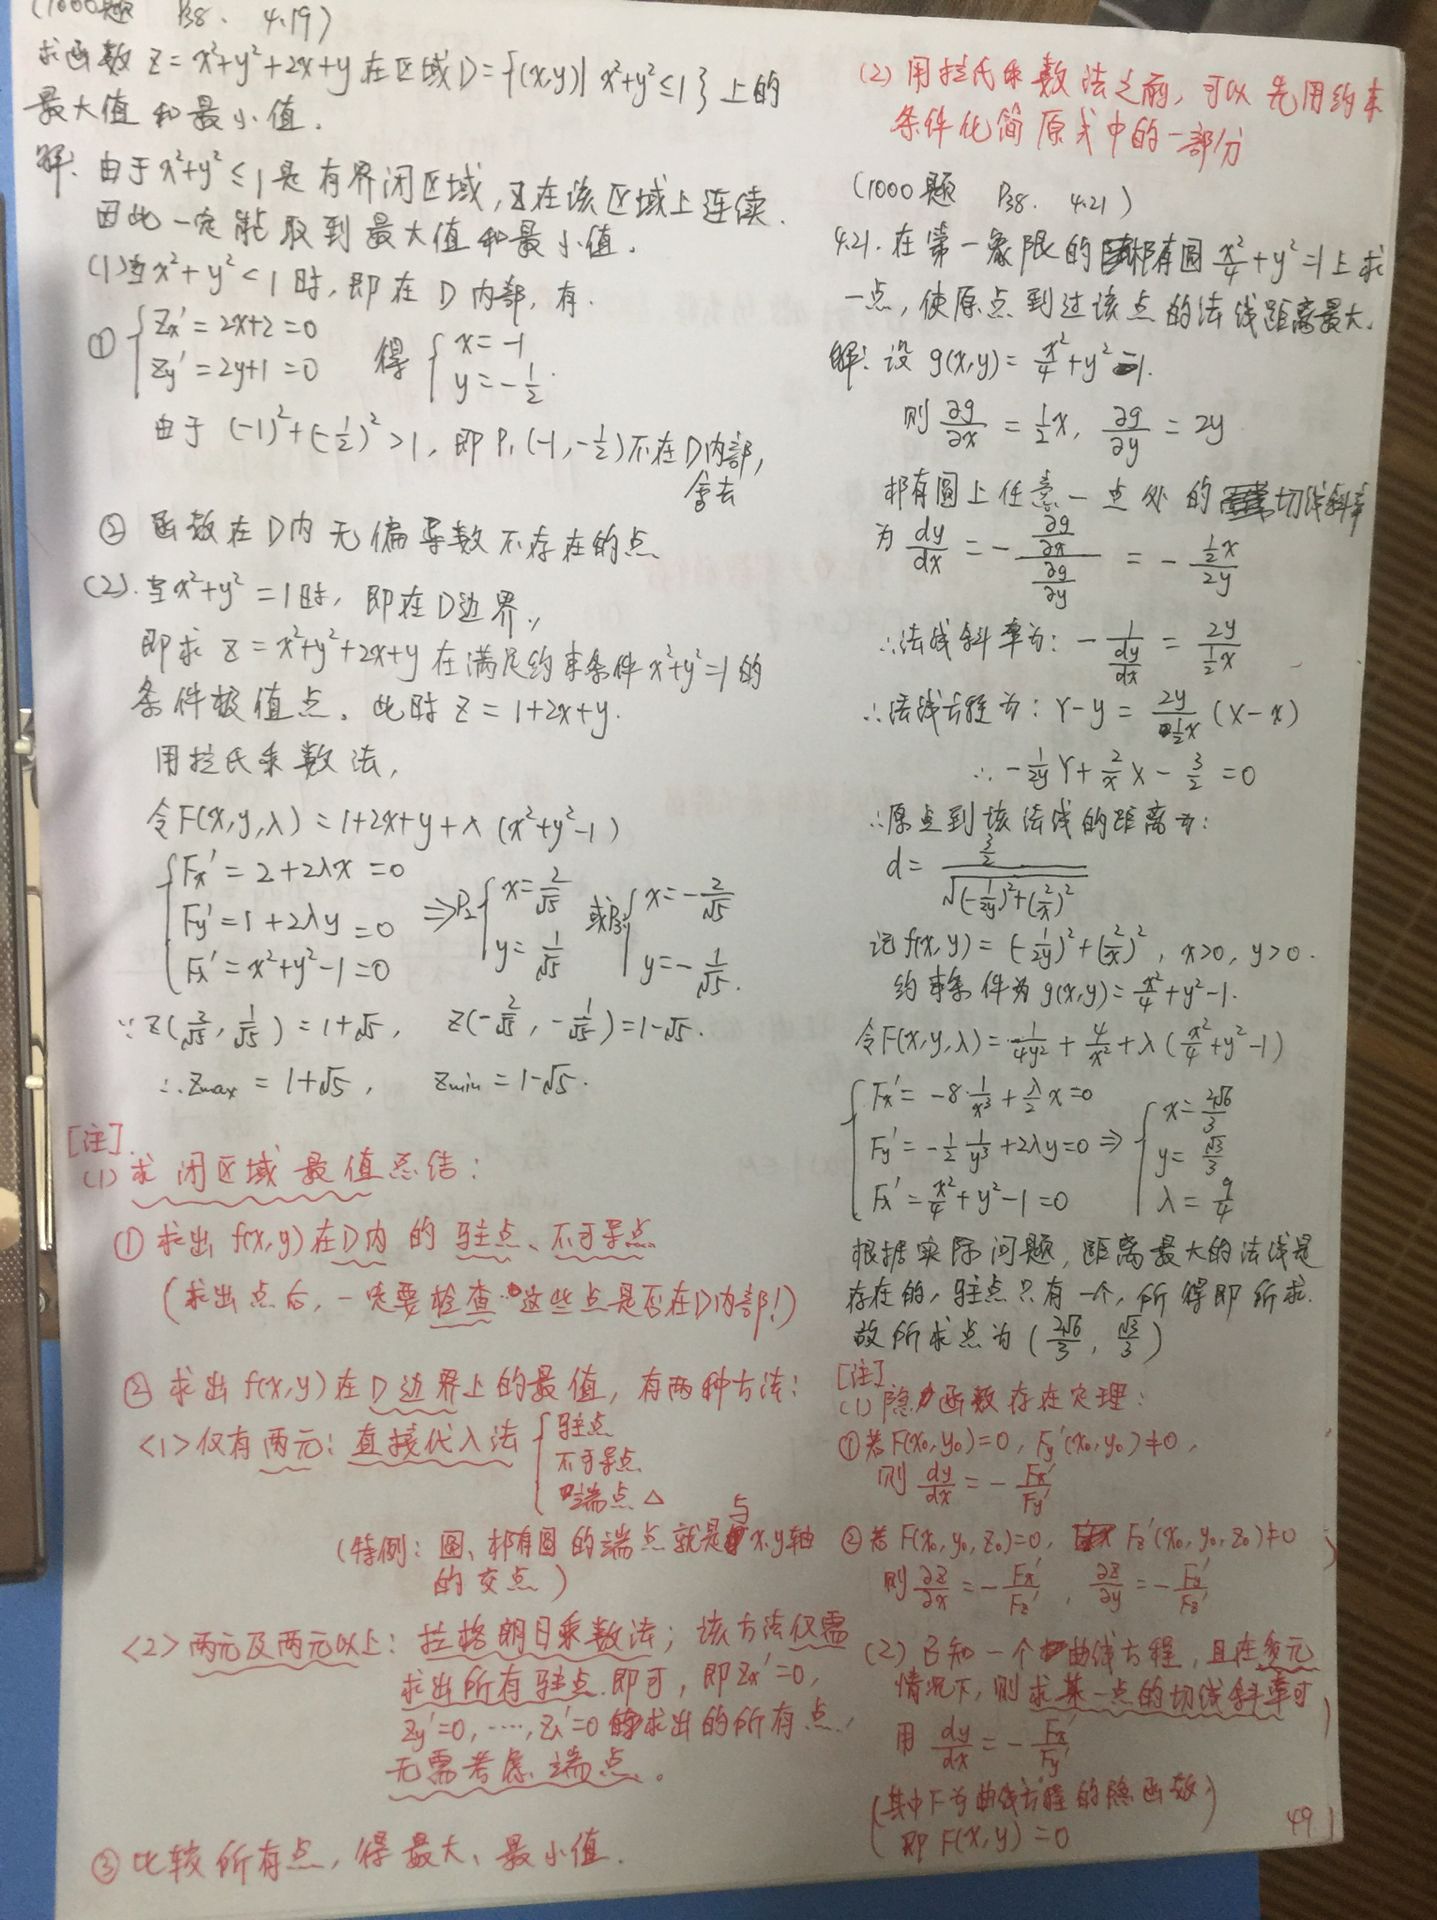 (1000题 P38. 4.19)
求函数 z = x²+y²+2x+y 在区域 D = {(x,y)| x²+y² ≤ 1} 上的
最大值和最小值.
解: 由于 x²+y² ≤ 1 是有界闭区域, z在该区域上连续.
因此一定能取到最大值和最小值.
(1) 当 x²+y² < 1 时, 即在 D 内部, 有.
① { Zx' = 2x+2 = 0
Zy' = 2y+1 = 0 得 { x = -1
y = -1/2.
由于 (-1)²+(-1/2)² > 1, 即 P₁(-1, -1/2) 不在D内部,
舍去
② 函数在 D 内无偏导数不存在的点
(2). 当 x²+y² = 1 时, 即在D边界.,
即求 z = x²+y²+2x+y 在满足约束条件 x²+y²=1 的
条件极值点. 此时 z = 1+2x+y.
用拉氏乘数法,
令 F(x,y,λ) = 1+2x+y+λ(x²+y²-1)
{ Fx' = 2+2λx = 0
Fy' = 1+2λy = 0
Fλ' = x²+y²-1 = 0 ⇒ P₂ { x = 2/√5
y = 1/√5 或P₃ { x = -2/√5
y = -1/√5.
∵ z(2/√5, 1/√5) = 1+√5, z(-2/√5, -1/√5) = 1-√5.
∴ Zmax = 1+√5, Zmin = 1-√5.
[注].
(1) 求闭区域最值总结:
① 求出 f(x,y) 在D内的驻点、不可导点
(求出点后, 一定要检查这些点是否在D内部!)
② 求出 f(x,y) 在 D 边界上的最值, 有两种方法:
<1> 仅有两元: 直接代入法 { 驻点
不可导点
端点 △
(特例: 圆、椭圆的端点就是与x,y轴
的交点)
<2> 两元及两元以上: 拉格朗日乘数法; 该方法仅需
求出所有驻点即可, 即 Zx'=0,
Zy'=0, ……, Zλ'=0 求出的所有点,
无需考虑端点。
③ 比较所有点, 得最大、最小值.
(2) 用拉氏乘数法之前, 可以先用约束
条件化简原式中的一部分
(1000题 P38. 4.21)
4.21. 在第一象限的椭圆 x²/4 + y² = 1 上求
一点, 使原点到过该点的法线距离最大.
解: 设 g(x,y) = x²/4 + y² -1.
则 ∂g/∂x = 1/2 x, ∂g/∂y = 2y
椭圆上任意一点处的切线斜率
为 dy/dx = - (∂g/∂x)/(∂g/∂y) = - (1/2 x)/(2y)
∴法线斜率为: - 1/(dy/dx) = 2y/(1/2 x)
∴法线方程为: Y-y = 2y/(1/2 x) (X-x)
∴ -1/(2y) Y + 2/x X - 3/2 = 0
∴原点到该法线的距离为:
d = (3/2)/√((-1/(2y))²+(2/x)²)
记 f(x,y) = (-1/(2y))²+(2/x)², x>0, y>0.
约束条件为 g(x,y) = x²/4 + y² -1.
令 F(x,y,λ) = 1/(4y²) + 4/x² + λ(x²/4 + y² -1)
{ Fx' = -8·1/x³ + λ/2 x = 0
Fy' = -1/2 1/y³ + 2λy = 0
Fλ' = x²/4 + y² -1 = 0 ⇒ { x = 2√6/3
y = √3/3
λ = 9/4
根据实际问题, 距离最大的法线是
存在的, 驻点只有一个, 所得即所求.
故所求点为 (2√6/3, √3/3)
[注]
(1) 隐函数存在定理:
① 若 F(x₀,y₀)=0, Fy'(x₀,y₀)≠0,
则 dy/dx = - Fx'/Fy'
② 若 F(x₀,y₀,z₀)=0, Fz'(x₀,y₀,z₀)≠0
则 ∂z/∂x = - Fx'/Fz', ∂z/∂y = - Fy'/Fz'
(2) 已知一个曲线方程, 且在多元
情况下, 则求某一点的切线斜率可
用 dy/dx = - Fx'/Fy'
(其中F为曲线方程的隐函数,
即 F(x,y) = 0)
49